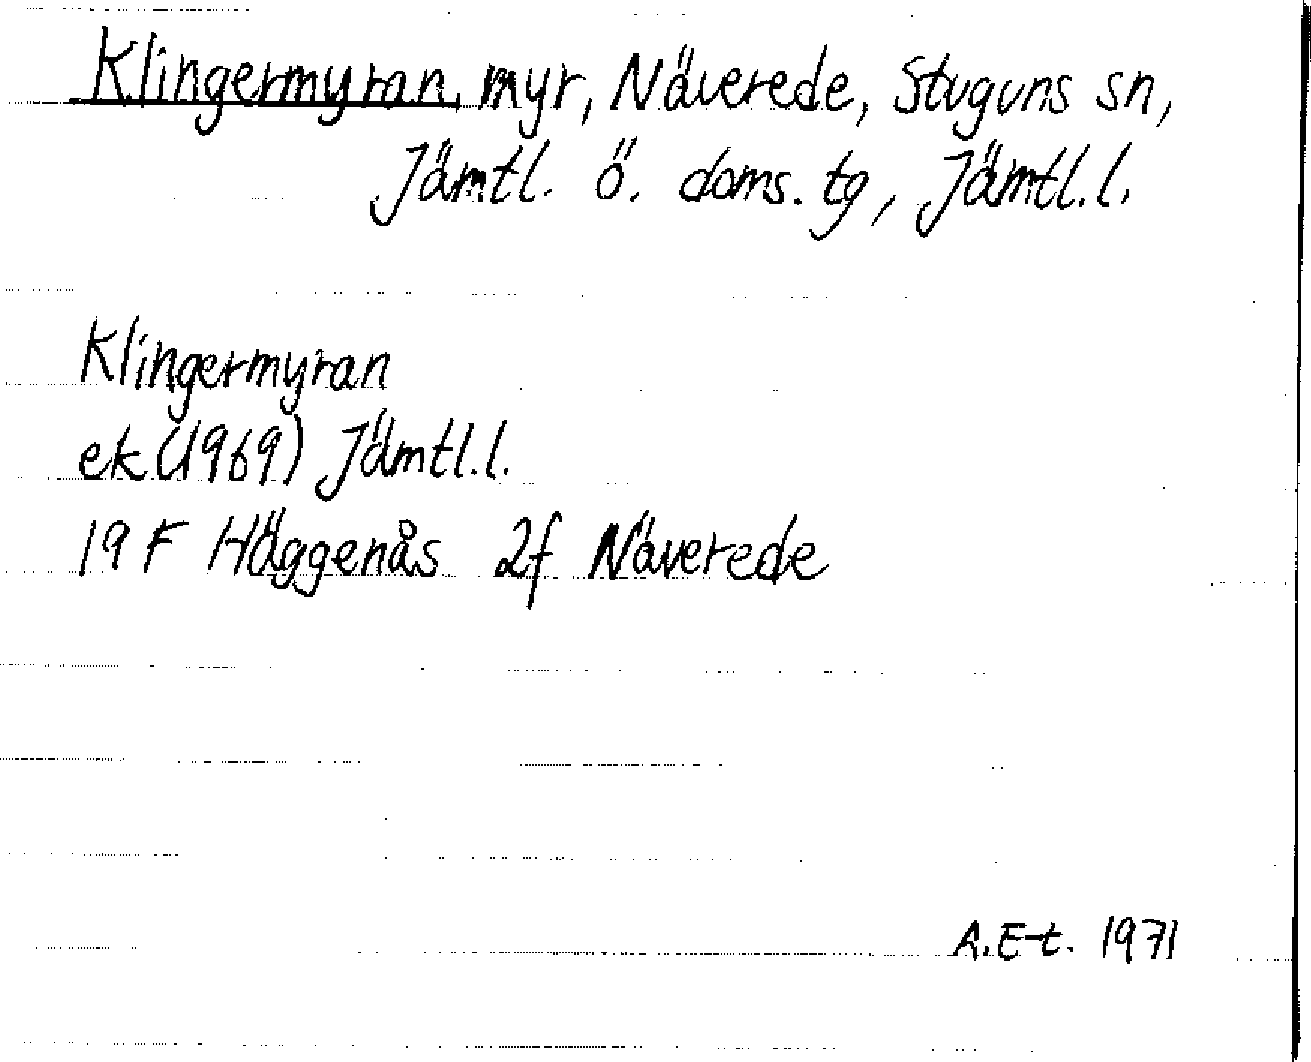 Klingermyran, myr, Näverede, Stuguns sn,
Jämtl. ö. doms. tg, Jämtl.l.
Klingermyran
ek (1969) Jämtl.l.
19 F Häggenås 2f Näverede
A.E-t. 1971